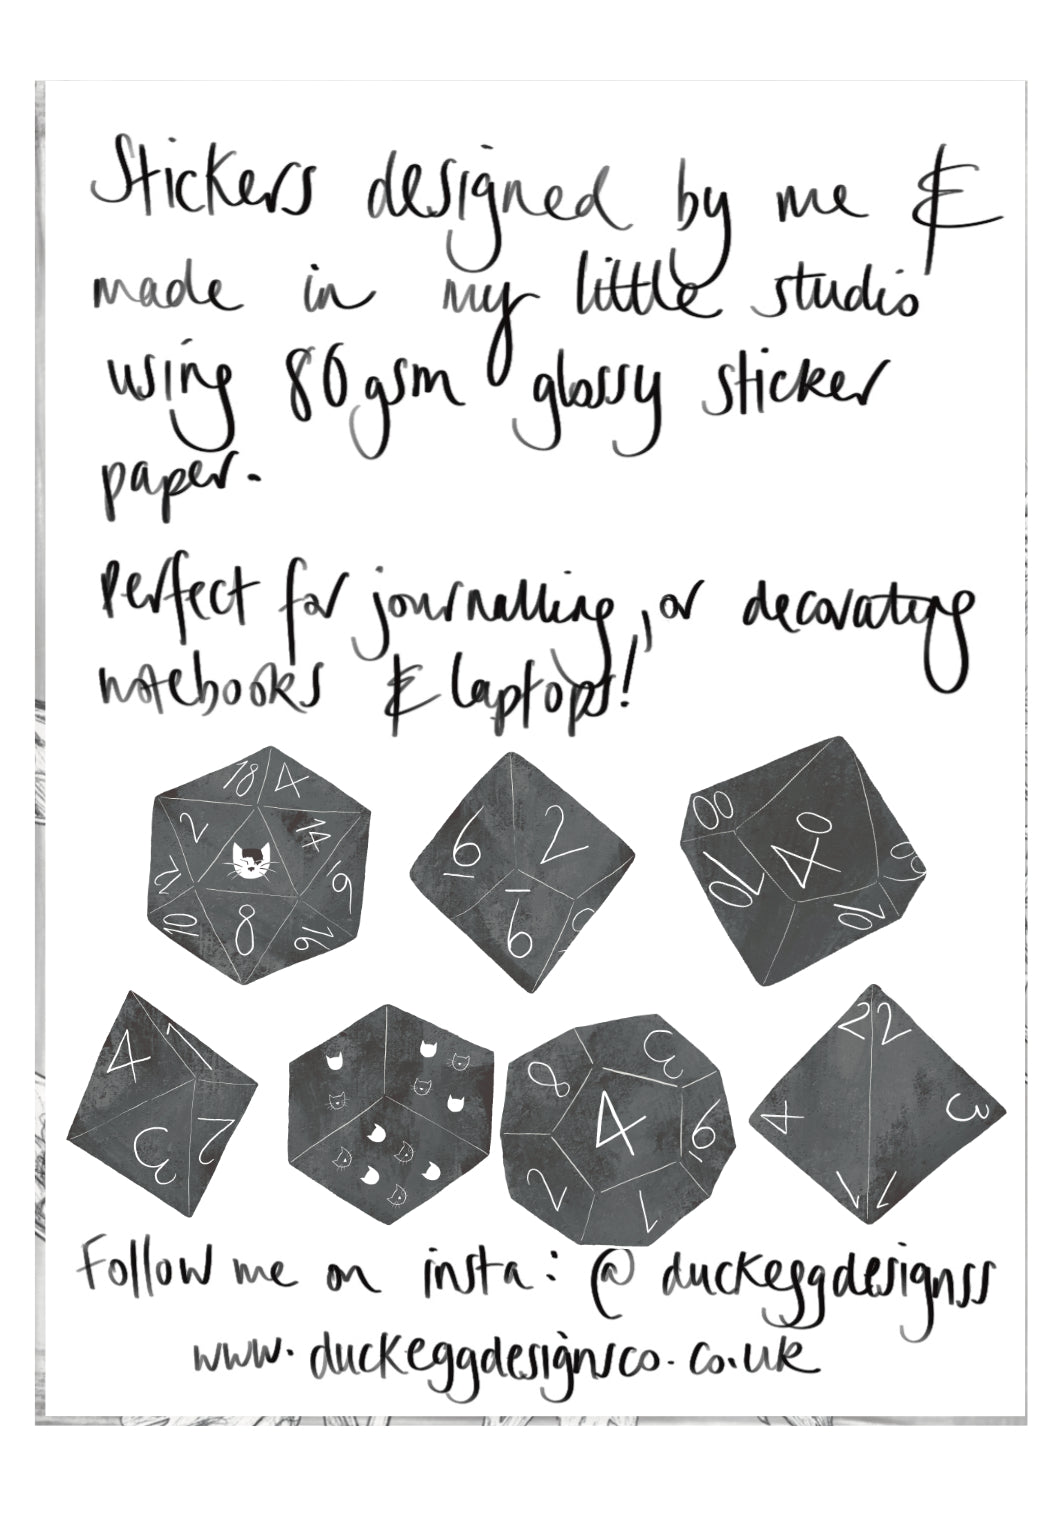 Stickers designed by me &
made in my little studio
using 80gsm glossy sticker
paper.
Perfect for journalling, or decorating
notebooks & laptops!
18 4
2 14
12 6
10 8 16
6 2
6
00 40 00
10 10
4 1
3 2
8 3
4 6
2 1
2 2
4 3
1 1
Follow me on insta: @duckeggdesignss
www.duckeggdesignsco.co.uk